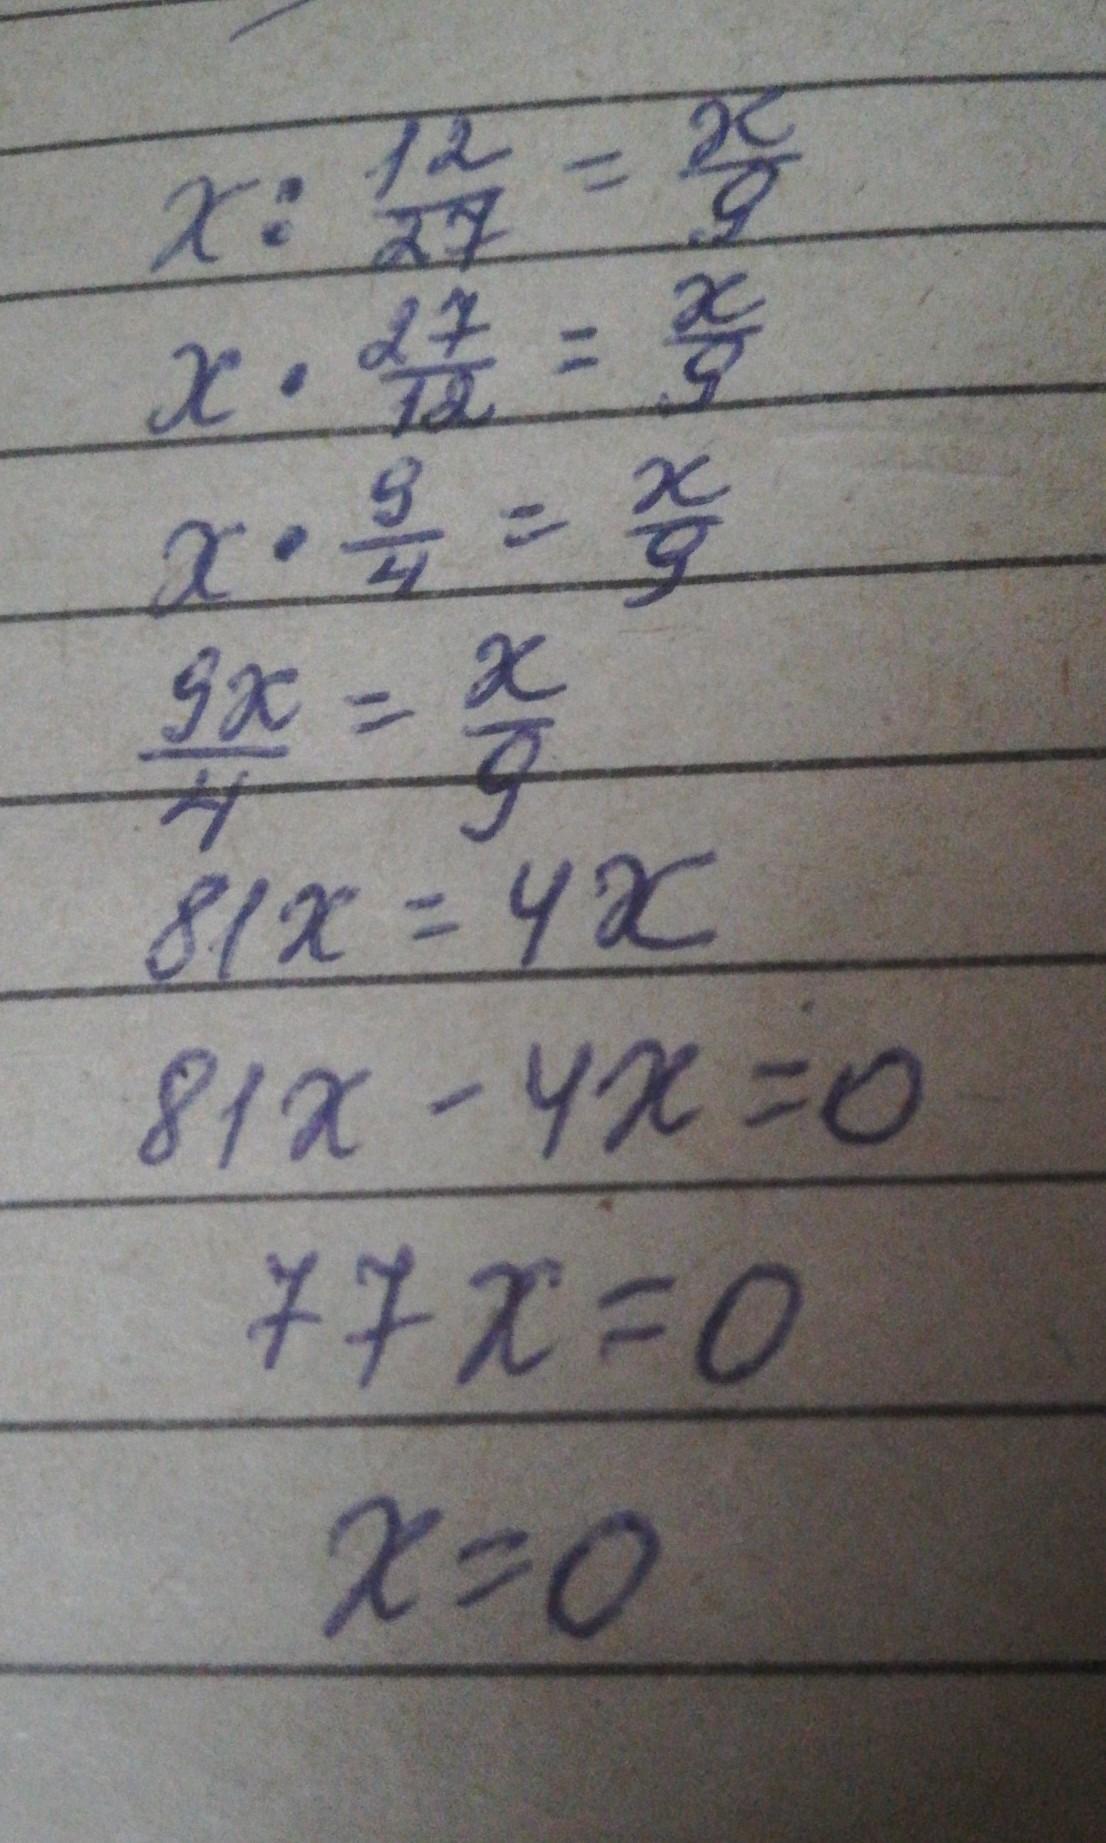 x : 12/27 = x/9
x · 27/12 = x/9
x · 9/4 = x/9
9x/4 = x/9
81x = 4x
81x - 4x = 0
77x = 0
x = 0